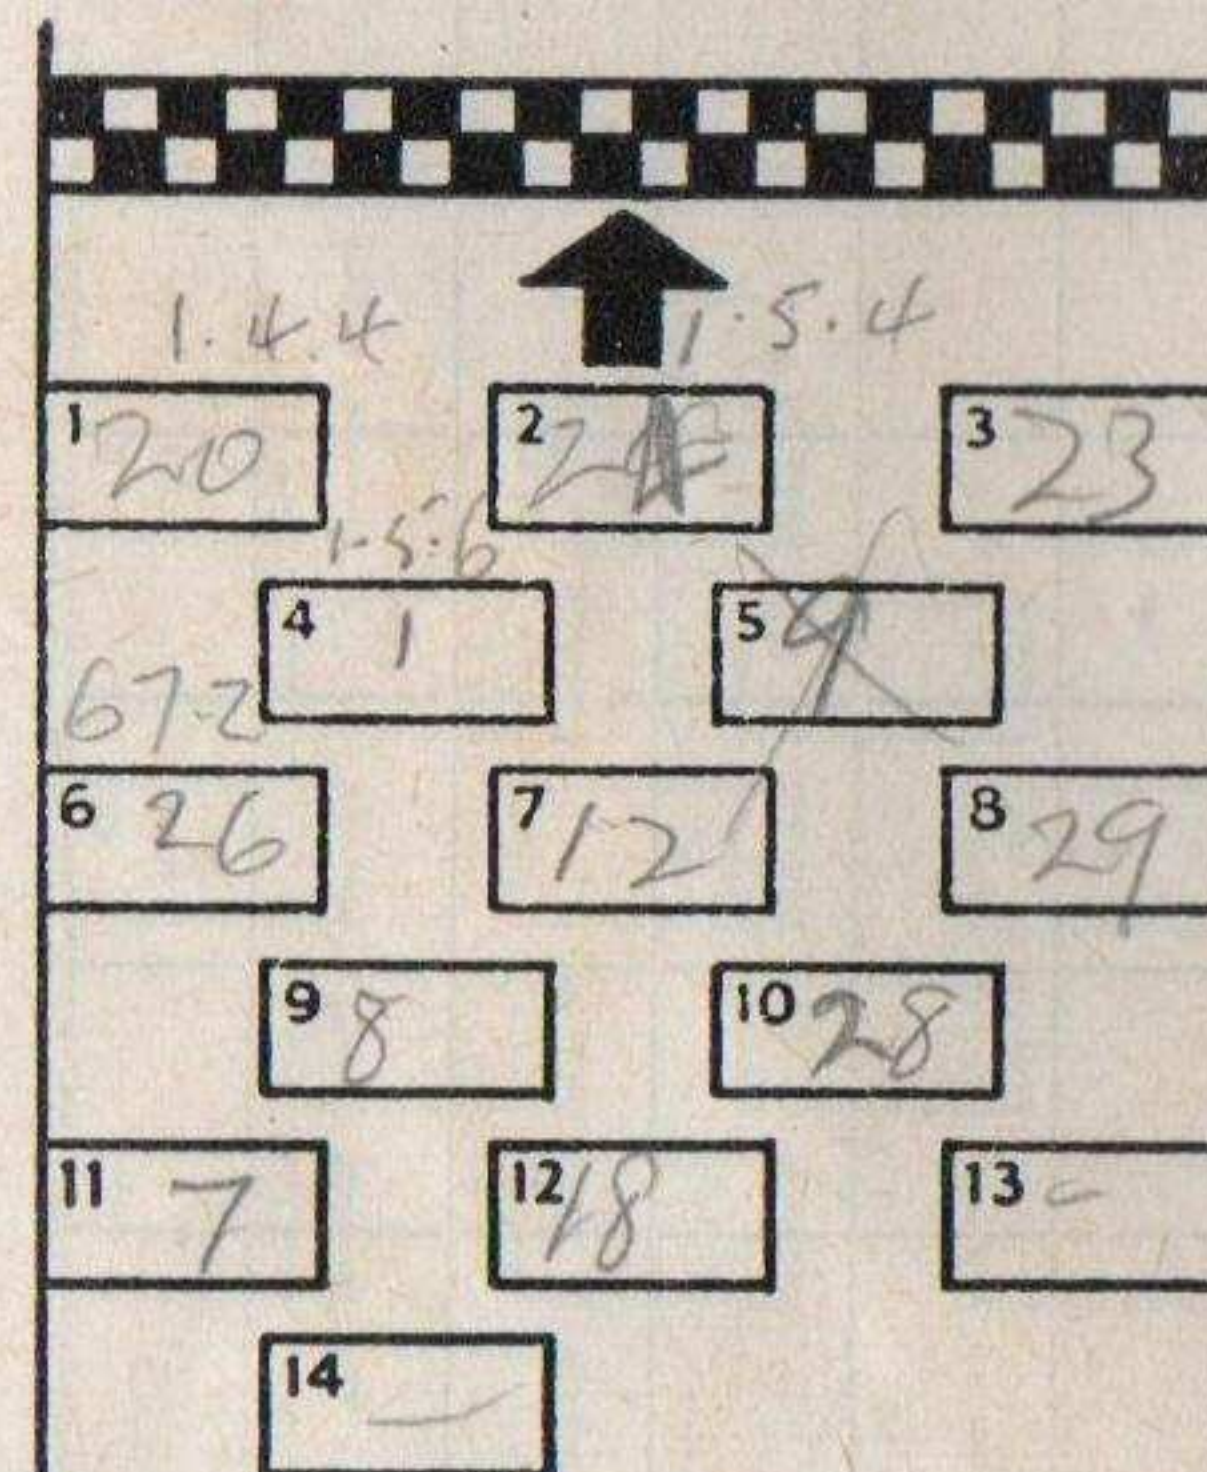 1.4.4 1.5.4
1 20 2 3 23
1.5.6
4 1 5
67.2
6 26 7 12 8 29
9 8 10 28
11 7 12 18 13 -
14 -